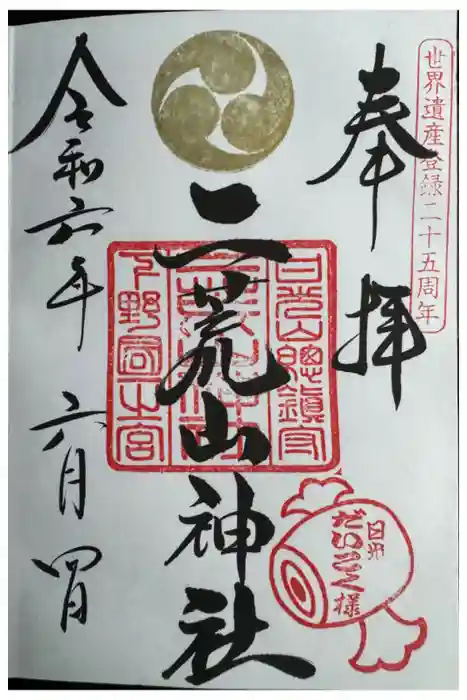 世界遺産登録二十五周年
奉拝
日光山總鎮守
二荒山神社
下野國一之宮
二荒山神社
日光
だいこく様
令和六年六月四日